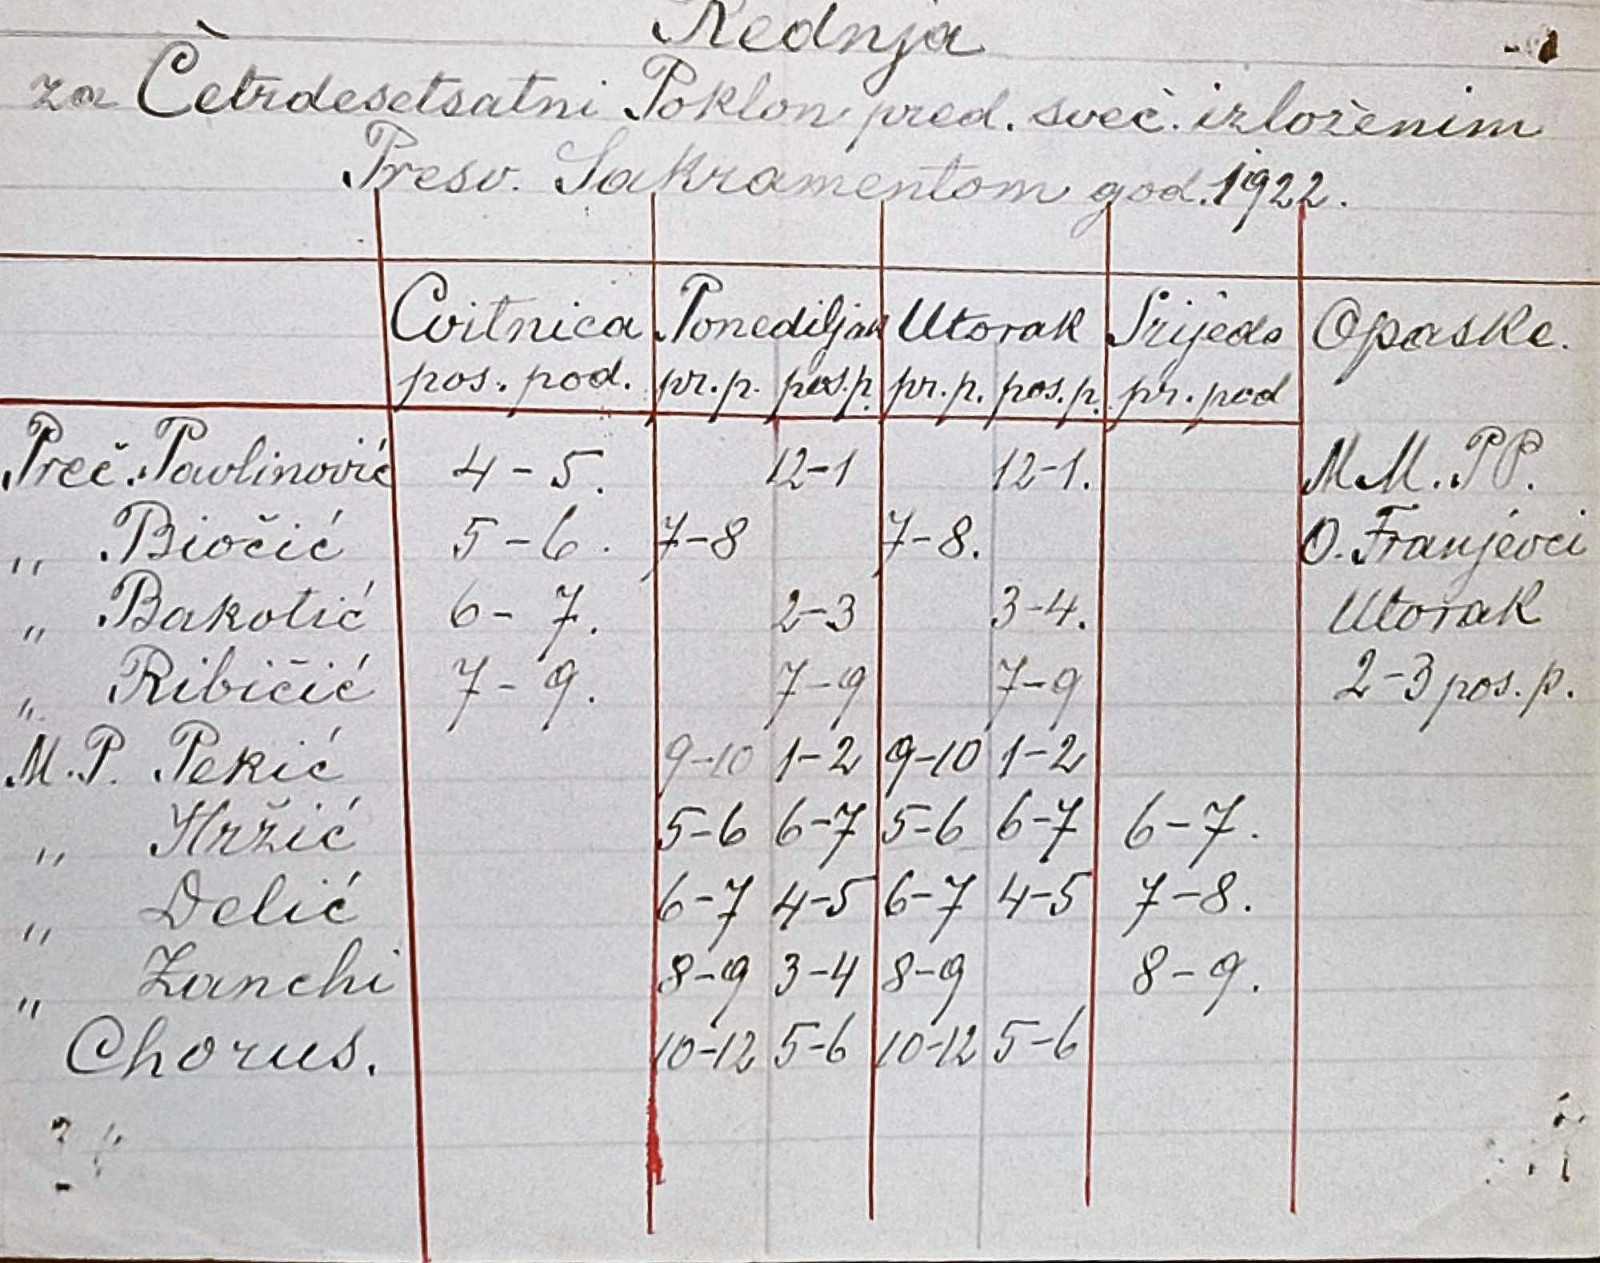 Rednja
za Četrdesetsatni Poklon pred. sveč. izloženim
Presv. Sakramentom god. 1922.
Cvitnica Ponediljak Utorak Srijeda Opaske.
pos. pod. pr. p. pos. p. pr. p. pos. p. pr. pod
Preč. Pavlinović 4-5. 12-1 12-1. M M. PP.
„ Biočić 5-6. 7-8 7-8. O. Franjevci
„ Bakotić 6-7. 2-3 3-4. Utorak
„ Ribičić 7-9. 7-9 7-9 2-3 pos. p.
M. P. Pekić 9-10 1-2 9-10 1-2
„ Hržić 5-6 6-7 5-6 6-7 6-7.
„ Delić 6-7 4-5 6-7 4-5 7-8.
„ Zanchi 8-9 3-4 8-9 8-9.
Chorus. 10-12 5-6 10-12 5-6